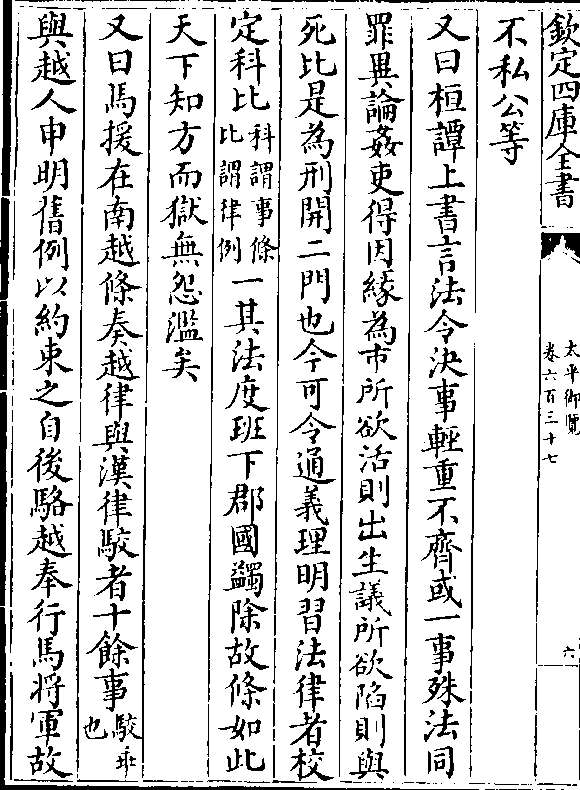 欽定四庫全書
太平御覽
卷六百三十七
六
不私公等
又曰桓譚上書言法令決事輕重不齊或一事殊法同
罪異論姦吏得因緣為市所欲活則出生議所欲陷則與
死比是為刑開二門也今可令通義理明習法律者校
定科比科謂事條比謂律例一其法度班下郡國蠲除故條如此
天下知方而獄無怨濫矣
又曰馬援在南越條奏越律與漢律駮者十餘事駮乖也
與越人申明舊例以約束之自後駱越奉行馬將軍故